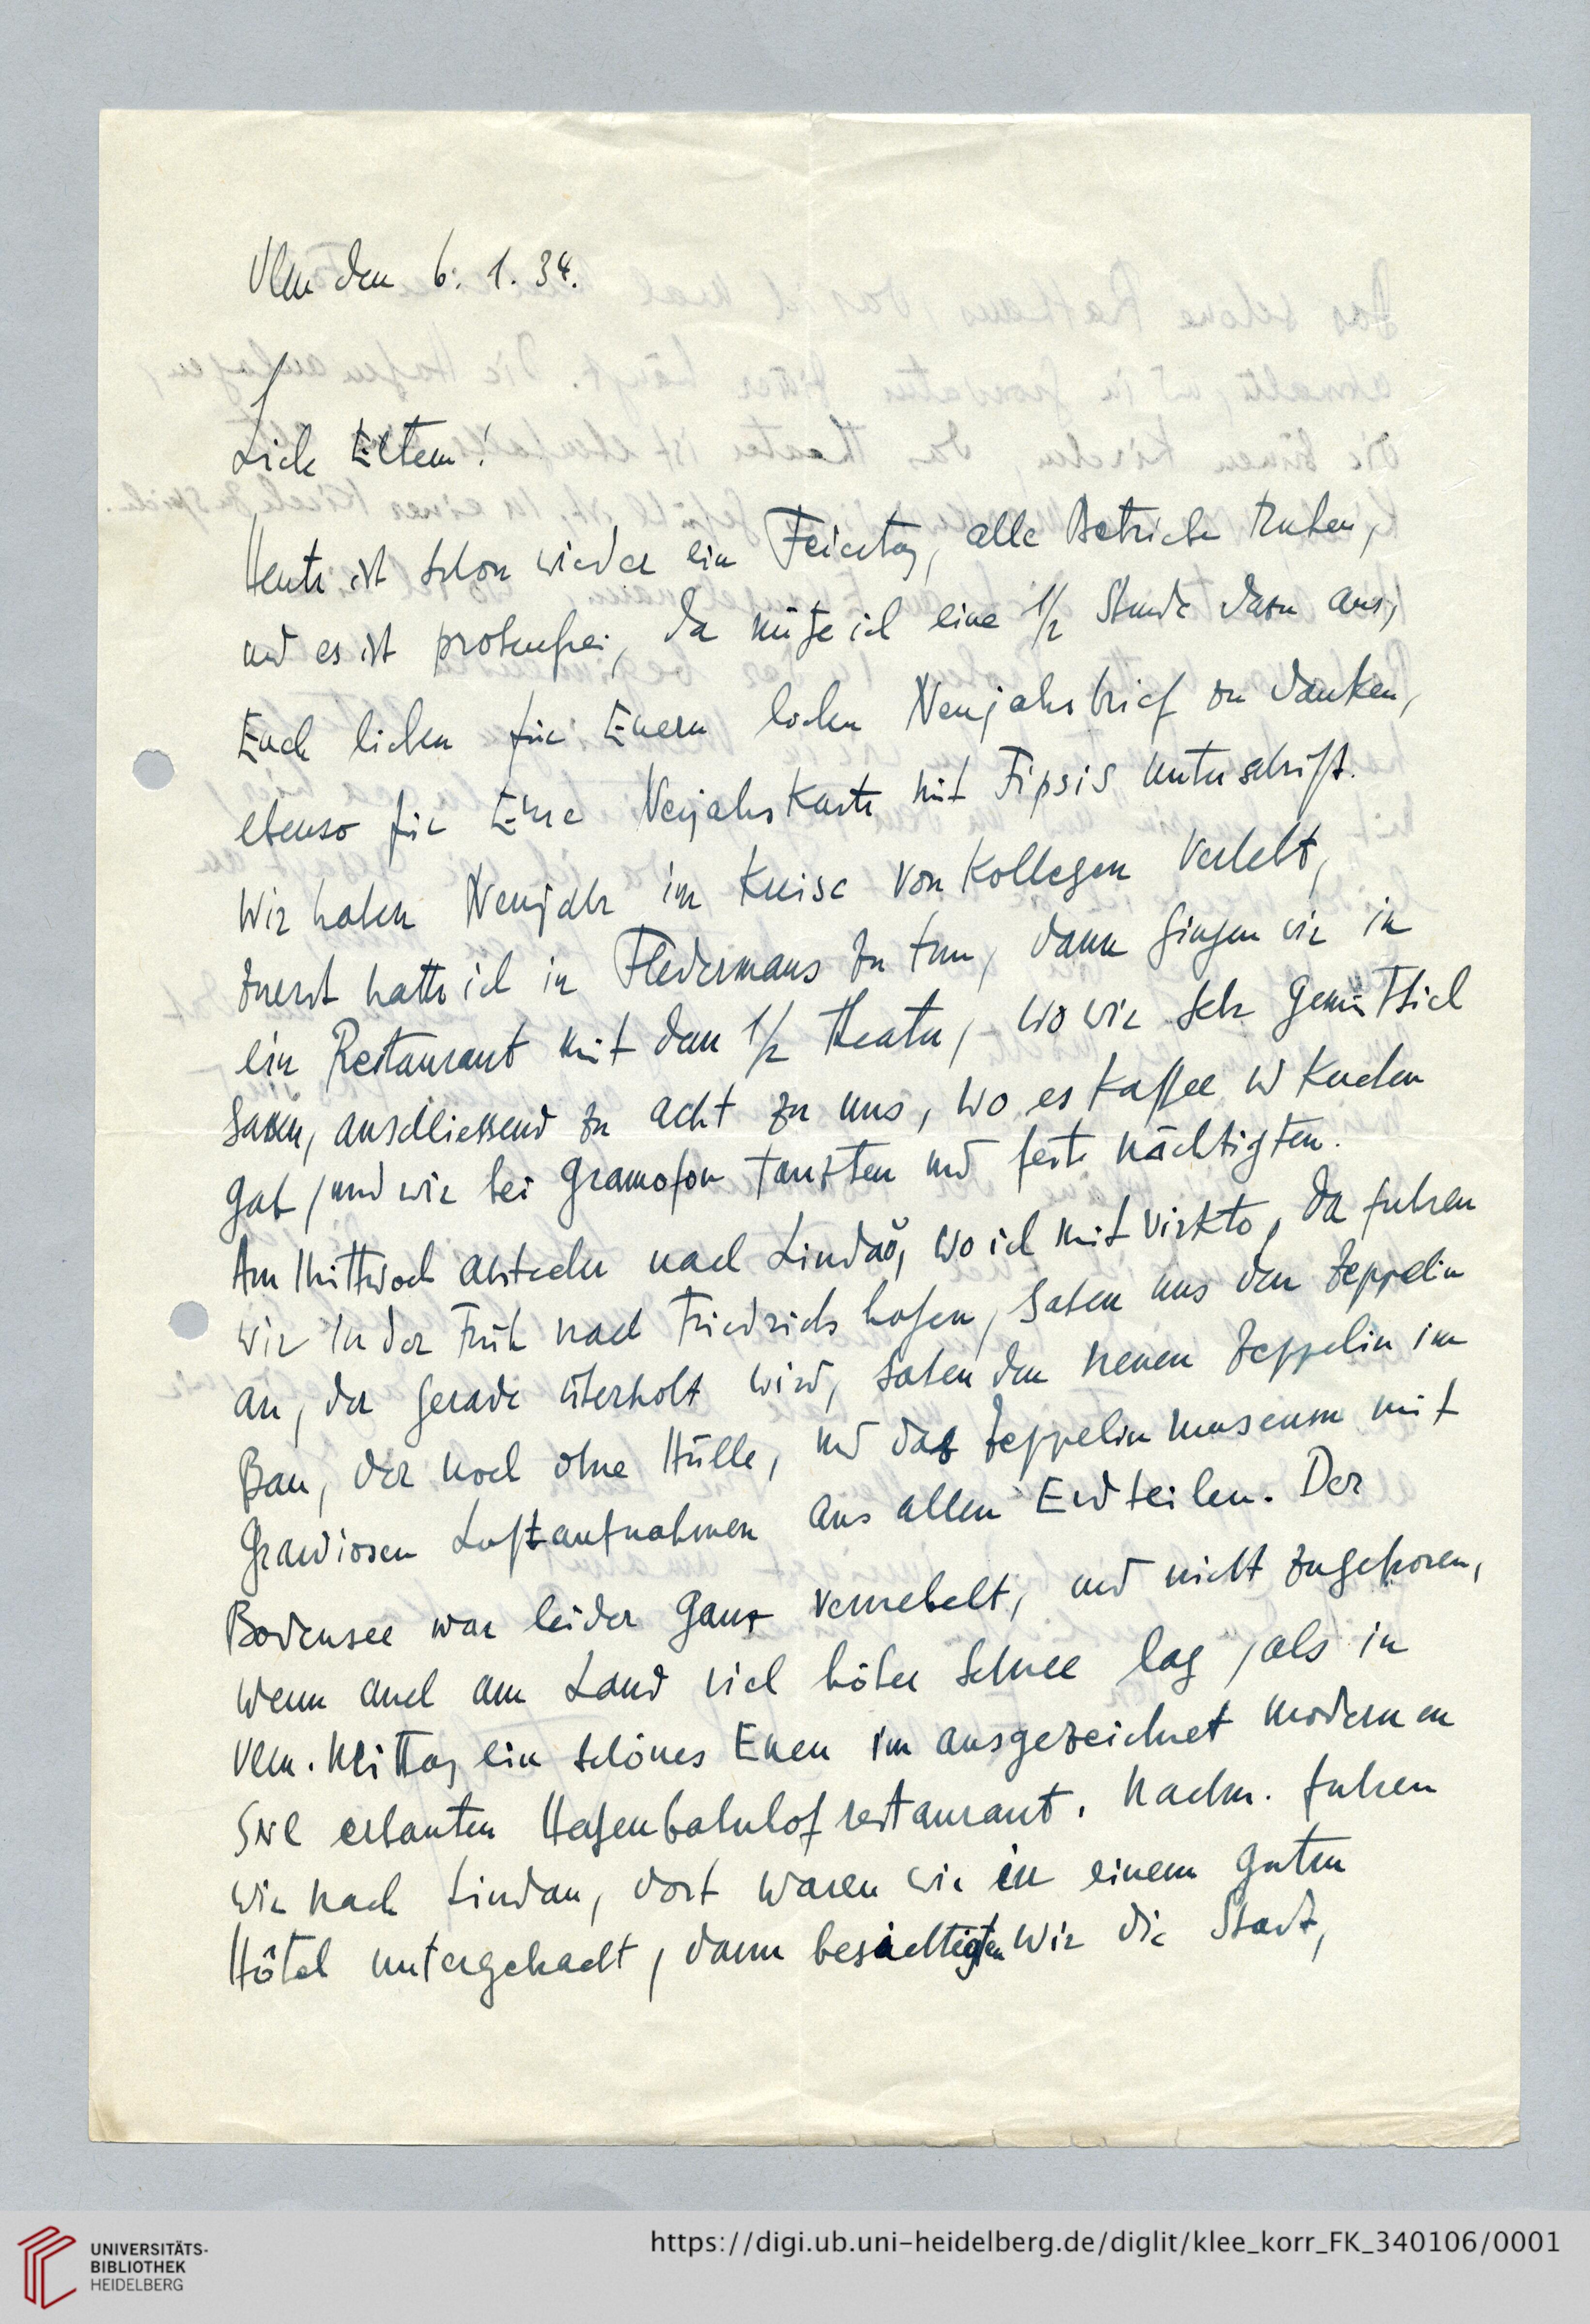 Ulm den 6. 1. 34.
Liebe Eltern!
Heute ist schon wieder ein Feiertag, alle Betriebe ruhen,
und es ist probenfrei, da nütze ich eine 1/2 Stunde dazu aus,
Euch lieben für Euern lieben Neujahrsbrief zu danken,
ebenso für Eure Neujahrskarte mit Fipsis Unterschrift.
Wir haben Neujahr im Kreise von Kollegen verlebt,
zuerst hatte ich in Fledermaus zu tun, dann gingen wir in
ein Restaurant mit dem 1/2 Theater, wo wir sehr gemütlich
sassen, anschliessend zu acht zu uns, wo es Kaffee u Kuchen
gab, und wir bei Gramofon tanzten und feste nächtigten.
Am Mittwoch Abstecher nach Lindau, wo ich mit, da fuhren
wir in der Früh nach Friedrichshafen, sahen uns den Zeppelin
an, der gerade überholt wird, sahen den neuen Zeppelin im
Bau, der noch ohne Hülle, und das Zeppelin Museum mit
grandiosen Luftaufnahmen aus allen Erdteilen. Der
Bodensee war leider ganz vernebelt, und nicht zugefroren,
wenn auch am Land viel höher Schnee lag, als in
Ulm. Mittag ein schönes Essen im ausgezeichnet modernen
erbauten Hafenbahnhofrestaurant. Nachm. fuhren
wir nach Lindau, dort waren wir in einem guten
Hôtel untergebracht, dann besichtigten wir die Stadt,
UNIVERSITÄTS-
BIBLIOTHEK
HEIDELBERG
https://digi.ub.uni-heidelberg.de/diglit/klee_korr_FK_340106/0001